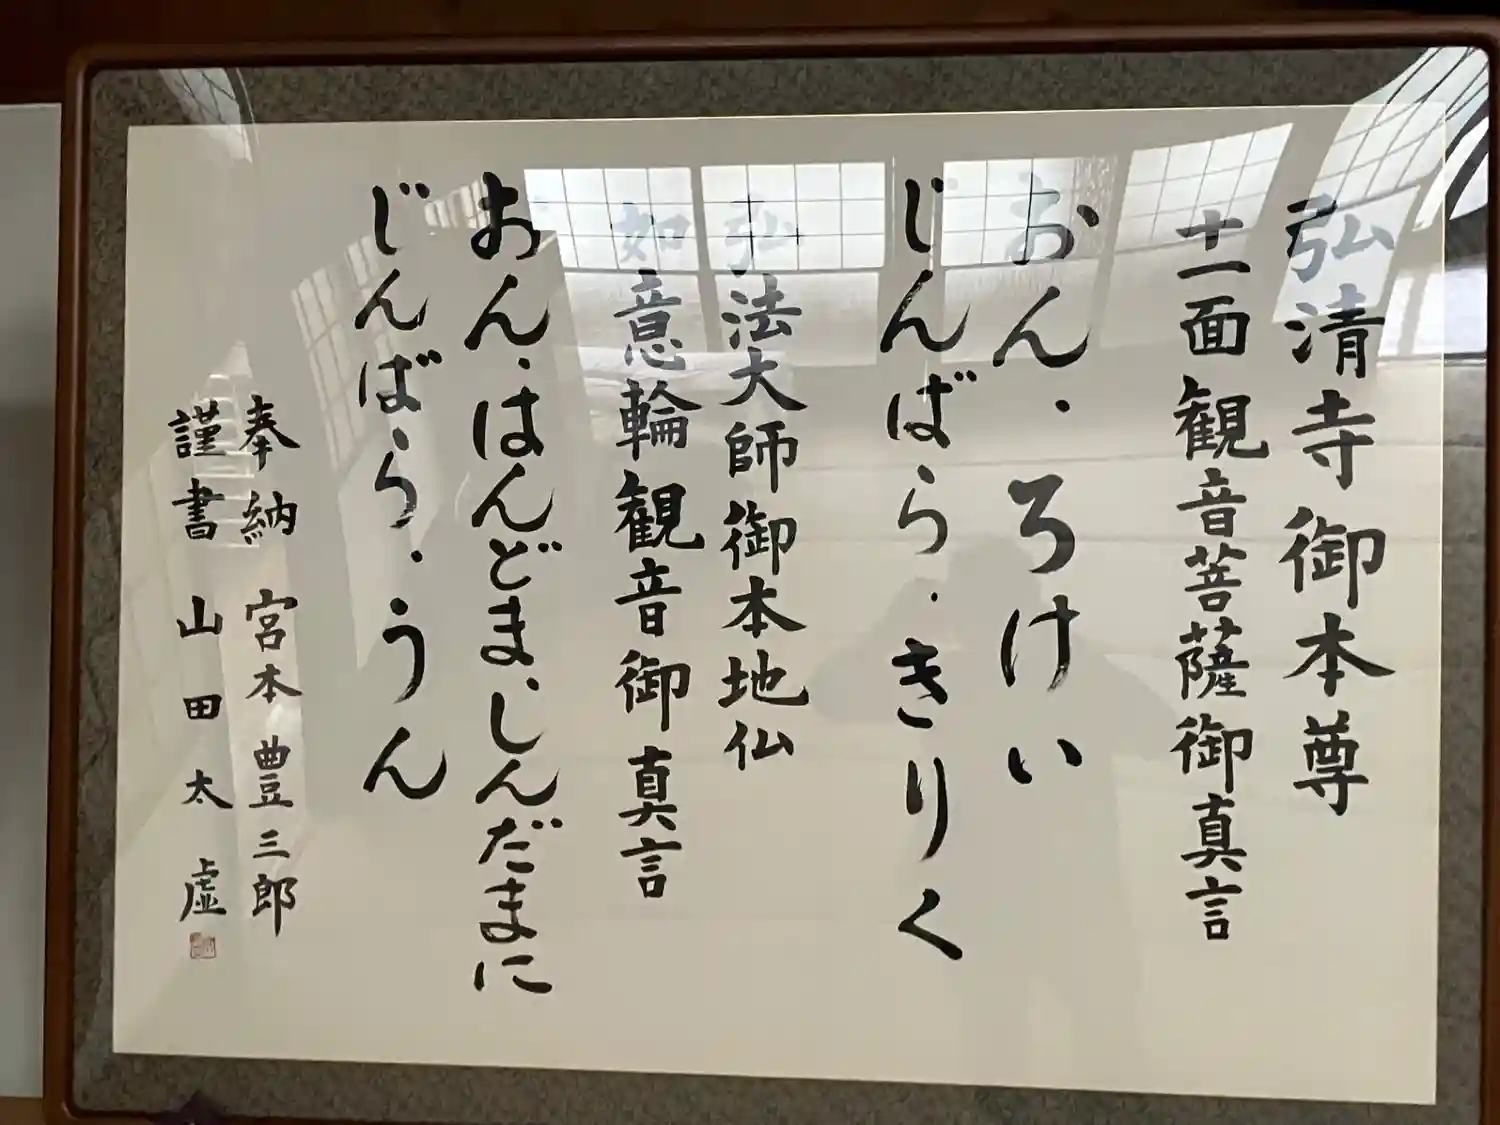 弘清寺御本尊
十一面観音菩薩御真言
おん・ろけい
じんばら・きりく
弘法大師御本地仏
如意輪観音御真言
おん・はんどま・しんだまに
じんばら・うん
奉納 宮本豊三郎
謹書 山田太虚